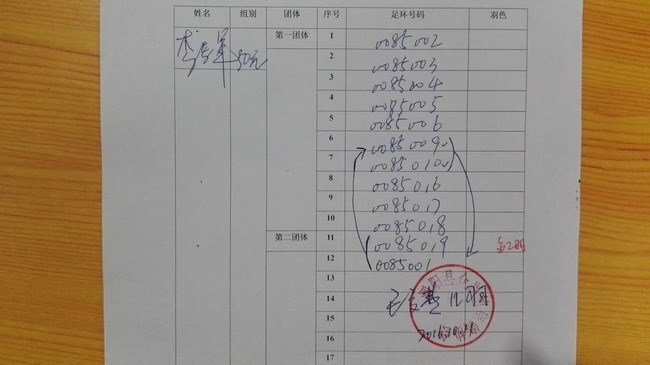 姓名 组别 团体 序号 足环号码 羽色
第一团体 1 0085002
50元
2 0085003
3 0085004
4 0085005
5 0085006
6 0085009
7 0085010
8 0085016
9 0085017
10 0085018
第二团体 11 0085019
12 0085001
13
14
15
16
17